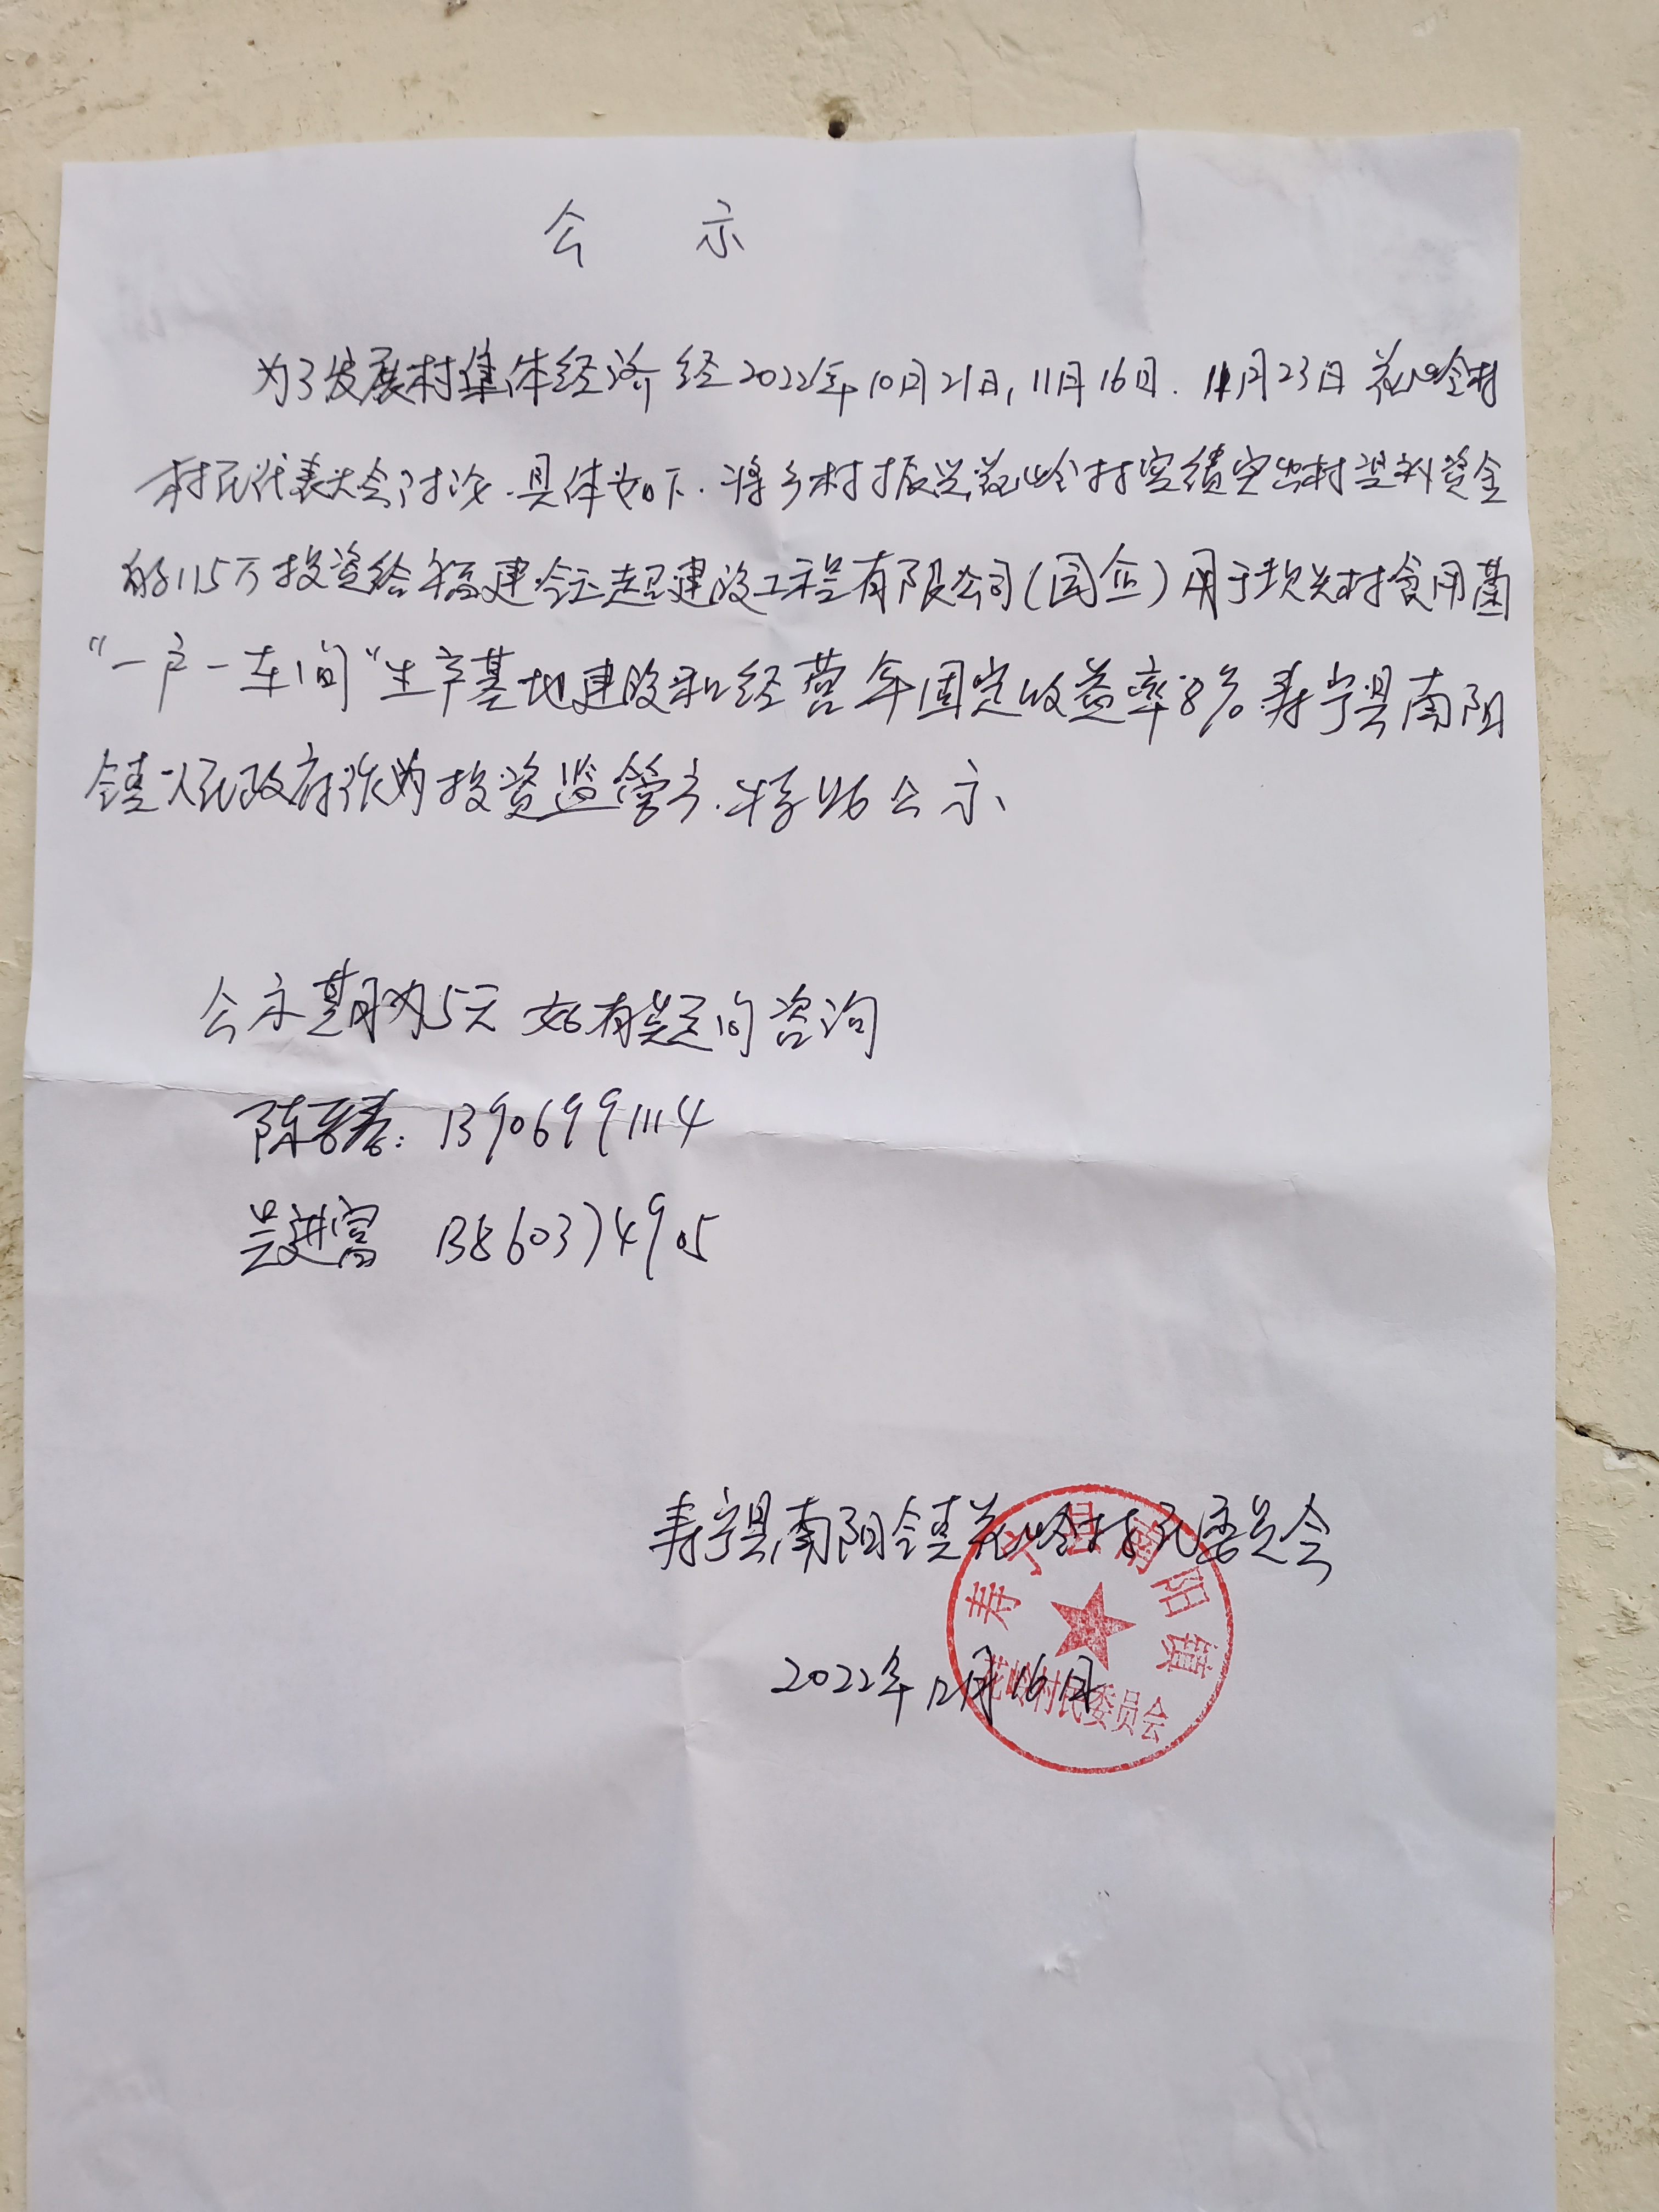 公 示
为了发展村集体经济经2022年10月21日,11月16日.11月23日花岭村
村民代表大会讨论.具体如下.将乡村振兴花岭村实绩突出村奖补资金
的115万投资给福建钲起建设工程有限公司(国企)用于坎头村食用菌
"一户一车间"生产基地建设和经营年固定收益率8%寿宁县南阳
镇人民政府作为投资监管方.特此公示
公示期为5天如有疑问咨询
陈春:13906991114
吴进富 13860374905
寿宁县南阳镇花岭村民委员会
2022年12月16日
寿宁县南阳镇
花岭村民委员会